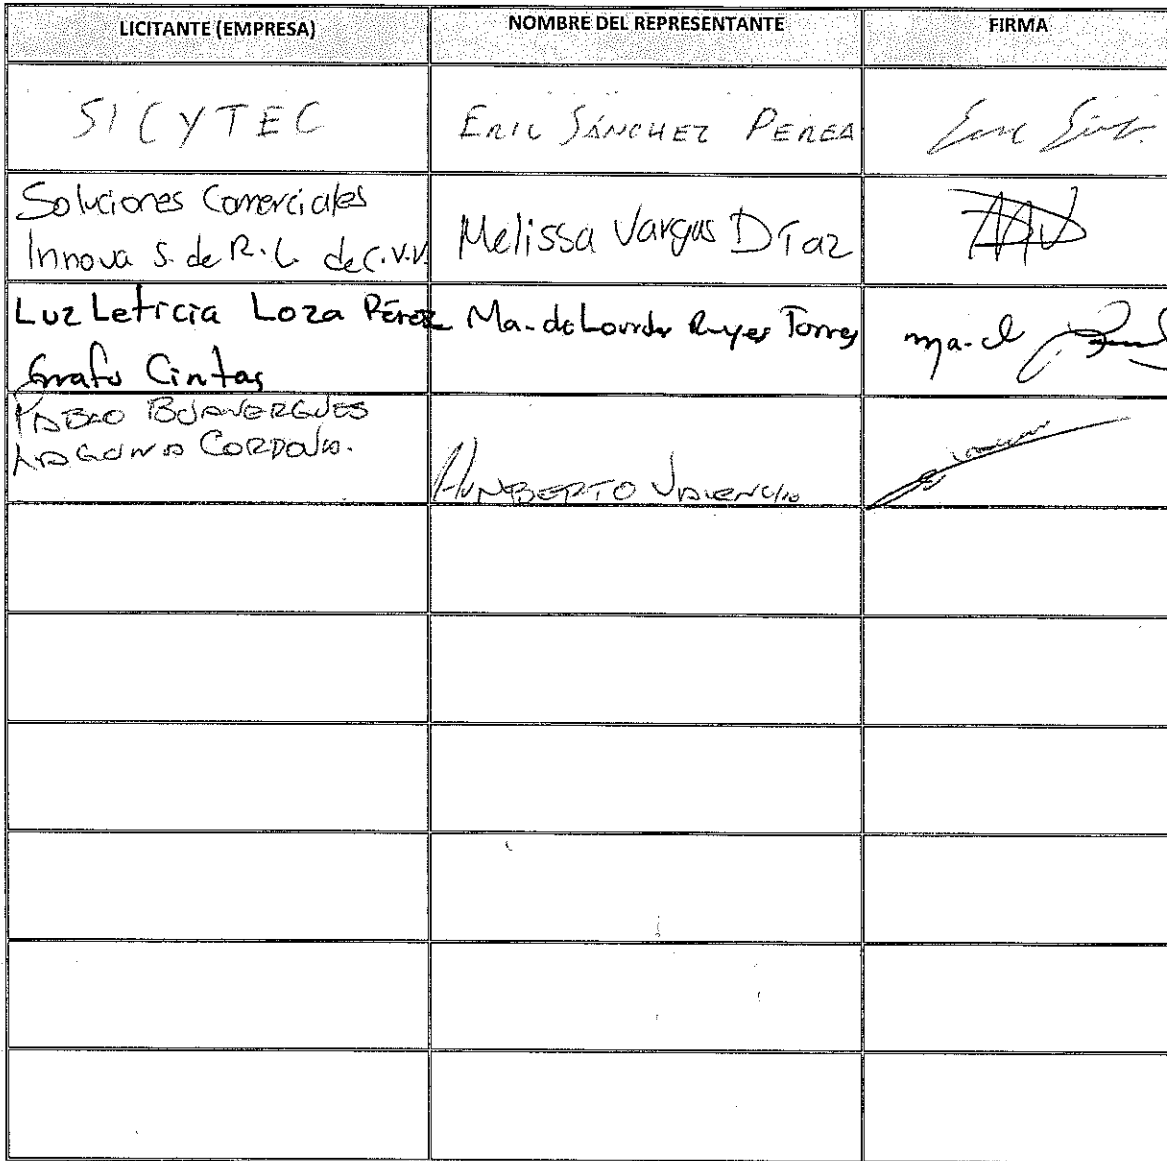 LICITANTE (EMPRESA) NOMBRE DEL REPRESENTANTE FIRMA
SICYTEC ERIC SÁNCHEZ PEREA
Soluciones Comerciales
Innova S. de R.L. de C.V.V. Melissa Vargas Díaz
Luz Leticia Loza Pérez Ma. de Lourdes Reyes Torres ma. d
Grafo Cintas
PABLO
LAGUNA HUMBERTO VALENCIA